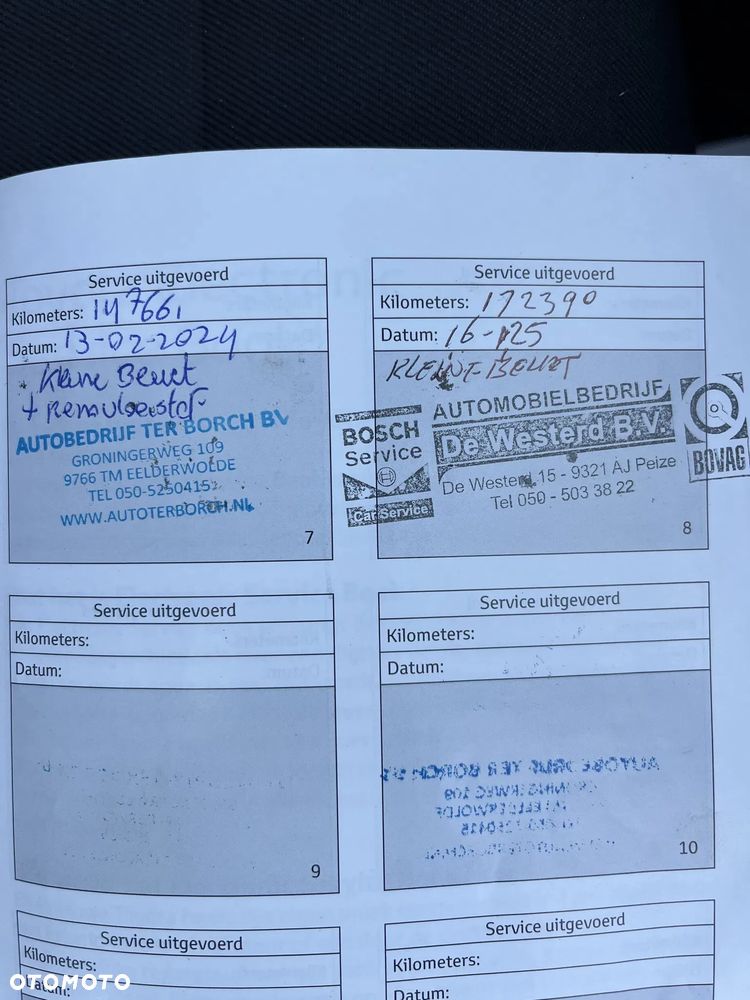 Service uitgevoerd
Kilometers: 147661
Datum: 13-02-2024
+ Kleine Beurt
+ Remvloeistof
AUTOBEDRIJF TER BORCH BV
GRONINGERWEG 109
9766 TM EELDERWOLDE
TEL 050-5250415
WWW.AUTOTERBORCH.NL
7
Service uitgevoerd
Kilometers: 172390
Datum: 16-1-25
KLEINE BEURT
BOSCH
Service
Car Service
AUTOMOBIELBEDRIJF
De Westerd B.V.
De Westerd 15 - 9321 AJ Peize
Tel 050 - 503 38 22
BOVAG
8
Service uitgevoerd
Kilometers:
Datum:
9
Service uitgevoerd
Kilometers:
Datum:
AUTOBEDRIJF TER BORCH BV
GRONINGERWEG 109
EELDERWOLDE
5250415
10
Service uitgevoerd
Kilometers:
Datum:
Service uitgevoerd
Kilometers:
Datum:
OTOMOTO